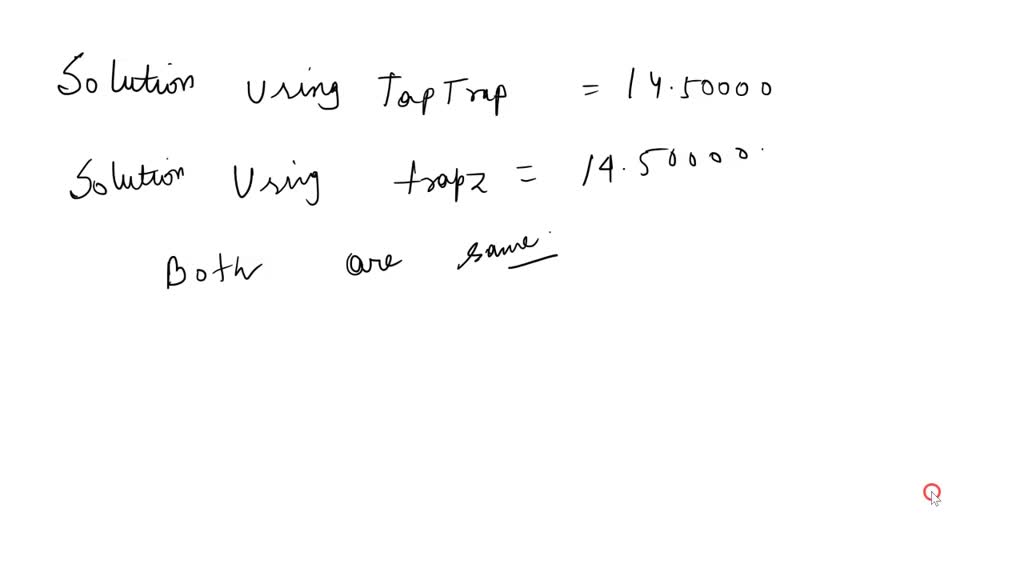 Solution Using TapTrap = 14.50000
Solution Using trapz = 14.50000.
Both are same.